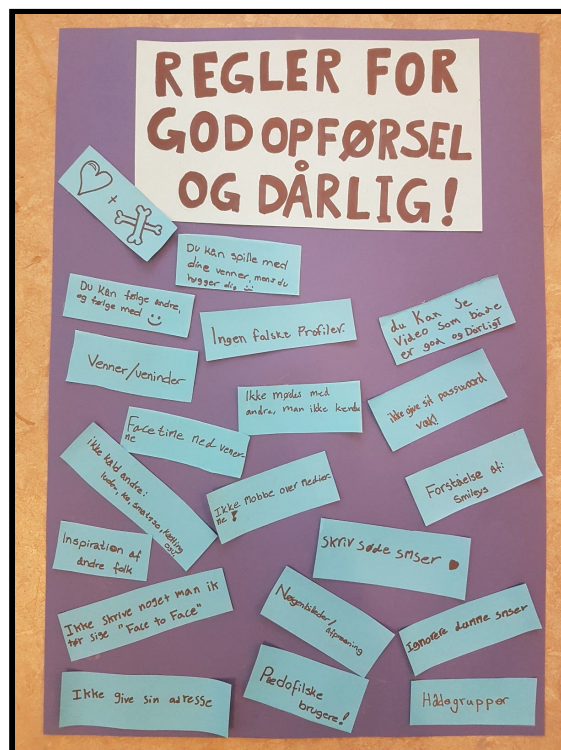 REGLER FOR
GOD OPFØRSEL
OG DÅRLIG!
+
Du kan spille med
dine venner, mens du
hygger dig
Du kan følge andre,
og følge med
Ingen falske Profiler.
du Kan Se
Video som både
er god og Dårligt
Venner/veninder
Ikke mødes med
andre, man ikke kender
ikke give sit password
væk!
Facetime med venner-
ne
ikke kald andre:
luder, ko, smatso, kælling
osv.
Ikke Mobbe over medier-
ne!
Forståelse af:
Smileys
Inspiration af
andre folk
Skriv søde smser
Ikke skrive noget man ik
tør sige "Face to Face"
Nøgenbilleder/
afpresning
Ignorere dumme smser
Pædofilske
brugere!
Ikke give sin adresse
Hådegrupper